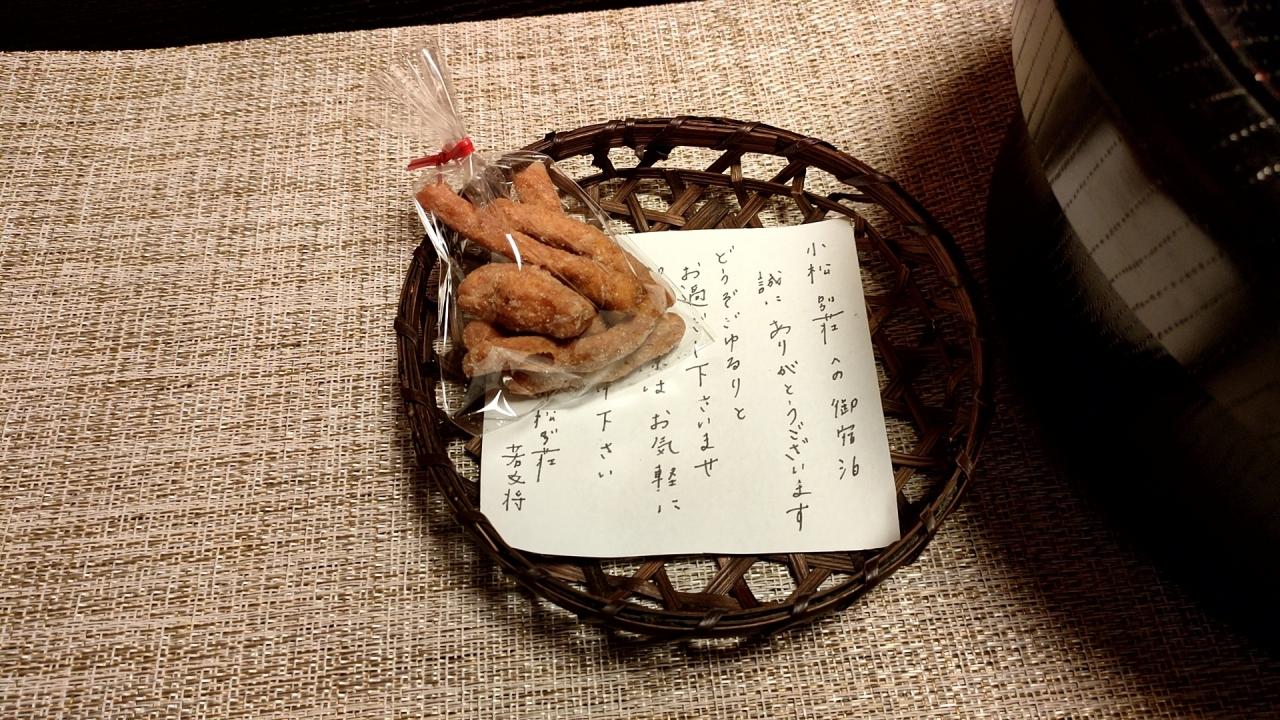 小松別荘への御宿泊
誠にありがとうございます
どうぞごゆるりと
お過ごし下さいませ
はお気軽に
下さい
松別荘
若女将